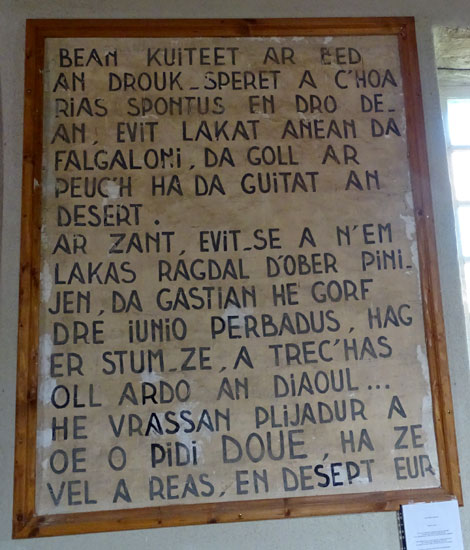 BEAN KUITEET AR BED
AN DROUK-SPERET A C'HOA
RIAS SPONTUS EN DRO DE-
AN, EVIT LAKAT ANEAN DA
FALGALONI, DA GOLL AR
PEUC'H HA DA GUITAT AN
DESERT.
AR ZANT, EVIT-SE A N'EM
LAKAS RAGDAL D'OBER PINI-
JEN, DA GASTIAN HE GORF
DRE IUNIO PERBADUS, HAG
ER STUM-ZE, A TREC'HAS
OLL ARDO AN DIAOUL...
HE VRASSAN PLIJADUR A
OE O PIDI DOUE, HA ZE
VEL A REAS, EN DESEPT EUR